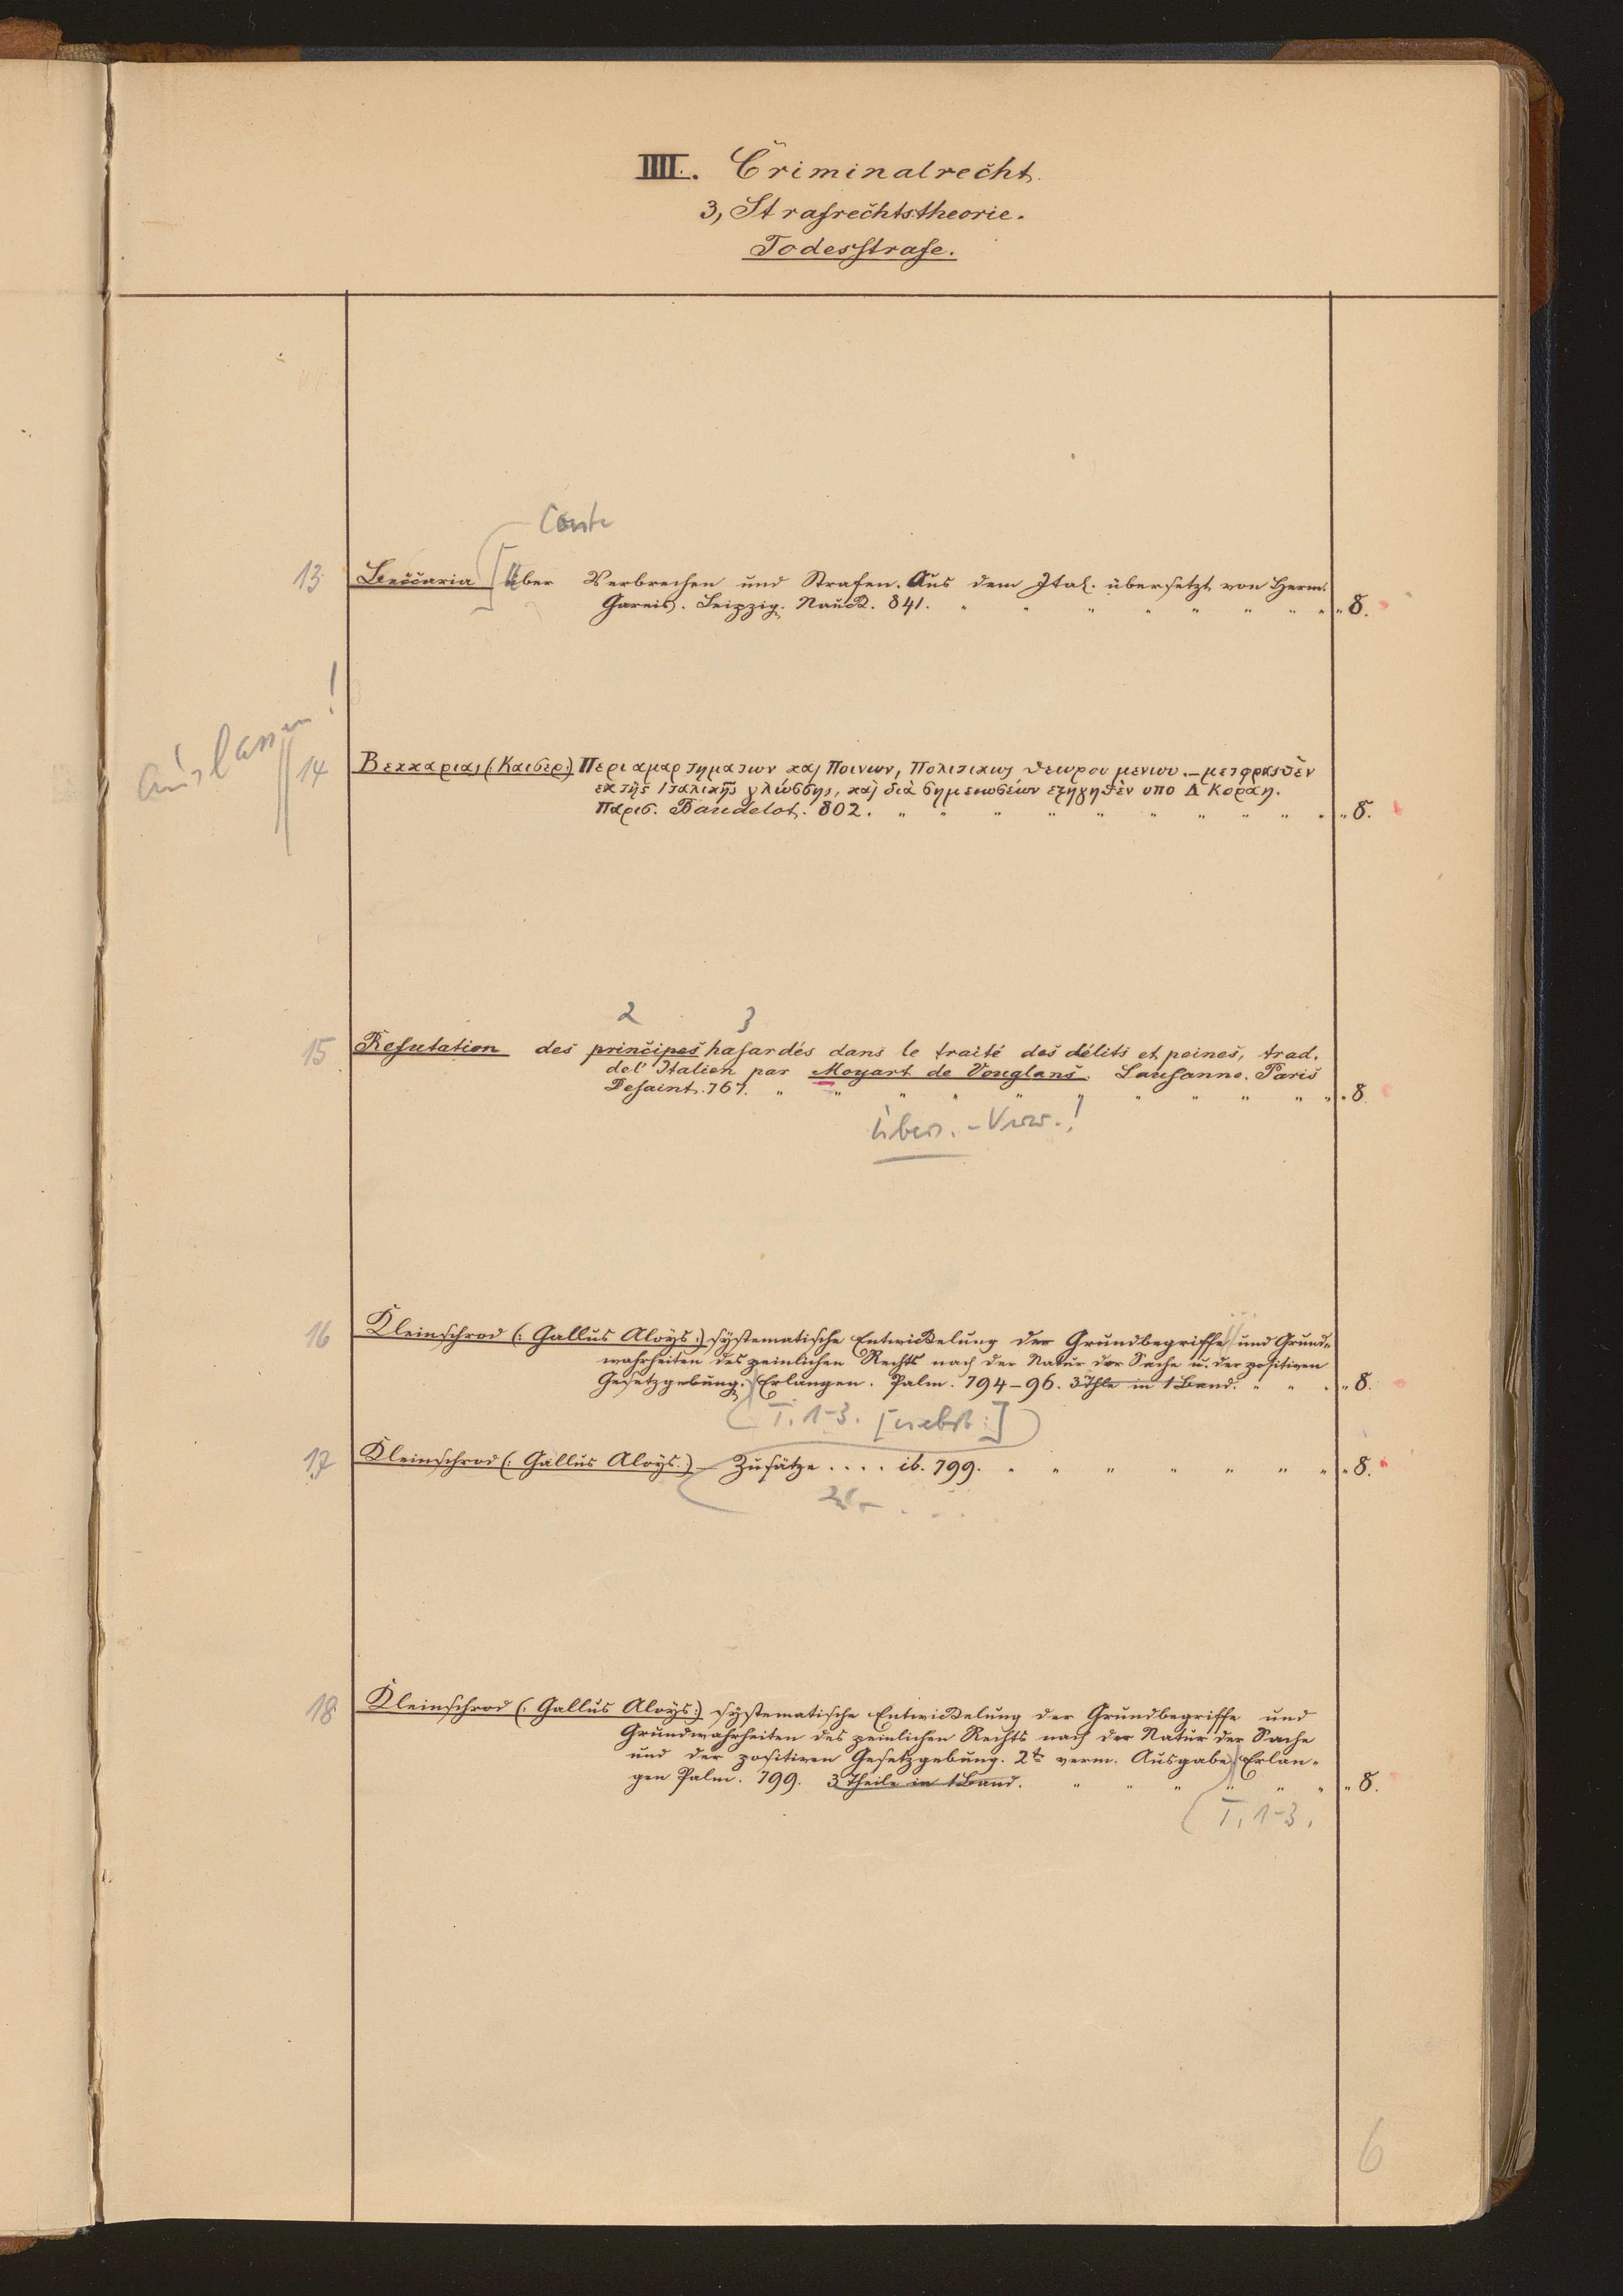 IIII. Criminalrecht.
3, Strafrechtstheorie.
Todesstrafe.
13 Beccaria über Verbrechen und Strafen. Aus dem Ital. übersetzt von Herm.
Gareis. Leipzig. Nauck. 841. " " " " " " " " " 8.
auslassen!
14 Βεκκαριας (: Καισερ:) Περι αμαρτηματων και Ποινων, Πολιτικως θεωρουμενων. – μεταφρασθὲν
εκ τῆς Ιταλικῆς γλώσσης, καὶ διὰ σημειωσεών εξηγηθὲν υπο Δ Κοραη.
Παρισ. Baudelot. 802. " " " " " " " " " " 8.
2 3
15 Refutation des principes hasardés dans le traité des délits et peines, trad.
del' Italien par Moyart de Vouglans. Lausanne. Paris
Desaint. 767. " " " " " " " " " " " 8.
Übers. – Verw.!
16 Kleinschrod (: Gallus Aloys:) systematische Entwickelung der Grundbegriffe und Grund-
wahrheiten des peinlichen Rechts nach der Natur der Sache u. der positiven
Gesetzgebung. Erlangen. Palm. 794–96. 3 Thle in 1 Band. " " " " 8.
T. 1-3. [nebst:]
17 Kleinschrod (: Gallus Aloys:) – Zusätze .... ib. 799. " " " " " " " " 8.
18 Kleinschrod (: Gallus Aloys:) systematische Entwickelung der Grundbegriffe und
Grundwahrheiten des peinlichen Rechts nach der Natur der Sache
und der positiven Gesetzgebung. 2te verm. Ausgabe. Erlan-
gen Palm. 799. 3 Theile in 1 Band. " " " " " " " 8.
T. 1-3.
6